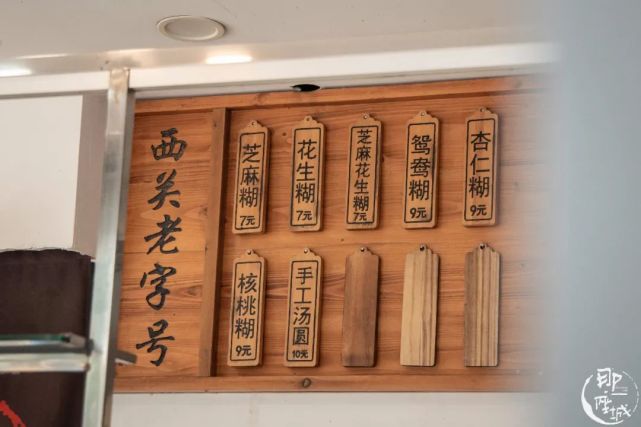 西关老字号
芝麻糊
7元
花生糊
7元
芝麻花生糊
7元
鸳鸯糊
9元
杏仁糊
9元
核桃糊
9元
手工汤圆
10元
那座城